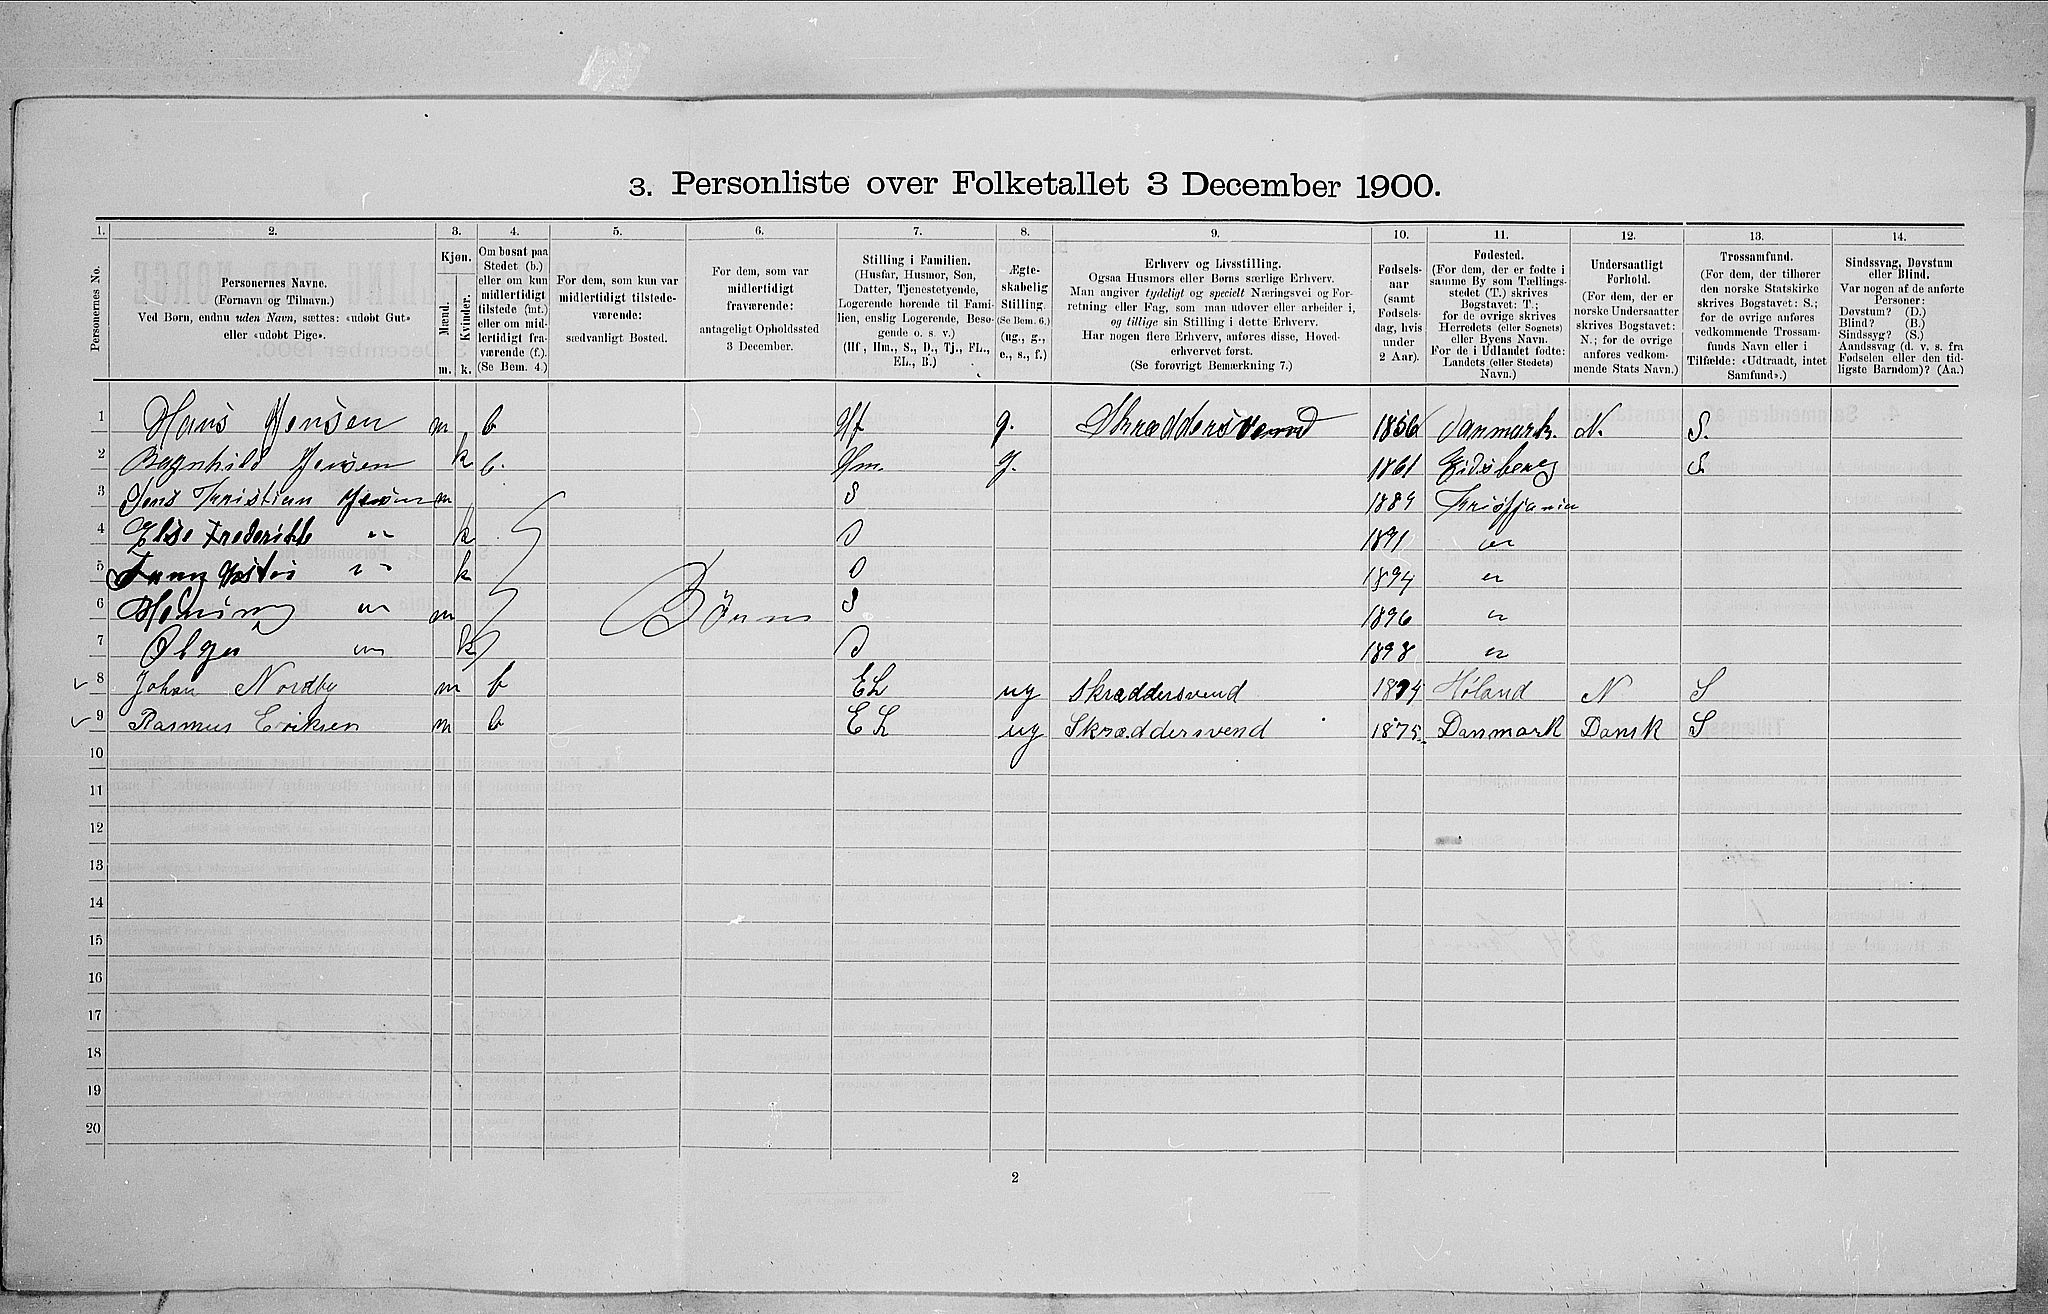 3. Personliste over Folketallet 3 December 1900.
1. 2. 3. 4. 5. 6. 7. 8. 9. 10. 11. 12. 13. 14.
Personernes No.
Personernes Navne.
(Fornavn og Tilnavn.)
Ved Børn, endnu uden Navn, sættes: «udøbt Gut»
eller «udøbt Pige».
Kjøn.
Mænd.
Kvinder.
m. k.
Om bosat paa
Stedet (b.)
eller om kun
midlertidigt
tilstede (mt.)
eller om mid-
lertidigt fra-
værende (f.).
(Se Bem. 4.)
For dem, som kun var
midlertidigt tilstede-
værende:
sædvanligt Bosted.
For dem, som var
midlertidigt
fraværende:
antageligt Opholdssted
3 December.
Stilling i Familien.
(Husfar, Husmor, Søn,
Datter, Tjenestetyende,
Logerende hørende til Fami-
lien, enslig Logerende, Besø-
gende o. s. v.)
(Hf., Hm., S., D., Tj., FL.,
EL., B.)
Ægte-
skabelig
Stilling.
(Se Bem. 6.)
(ug., g.,
e., s., f.)
Erhverv og Livsstilling.
Ogsaa Husmors eller Børns særlige Erhverv.
Man angiver tydeligt og specielt Næringsvei og For-
retning eller Fag, som man udøver eller arbeider i,
og tillige sin Stilling i dette Erhverv.
Har nogen flere Erhverv, anføres disse, Hoved-
erhvervet først.
(Se forøvrigt Bemærkning 7.)
Fødsels-
aar
(samt
Fødsels-
dag, hvis
under
2 Aar).
Fødested.
(For dem, der er fødte i
samme By som Tællings-
stedet (T.) skrives
Bogstavet: T.;
for de øvrige skrives
Herredets (eller Sognets)
eller Byens Navn.
For de i Udlandet fødte:
Landets (eller Stedets)
Navn.)
Undersaatligt
Forhold.
(For dem, der er
norske Undersaatter
skrives Bogstavet:
N.; for de øvrige
anføres vedkom-
mende Stats Navn.)
Trossamfund.
(For dem, der tilhører
den norske Statskirke
skrives Bogstavet: S.;
for de øvrige anføres
vedkommende Trossam-
funds Navn eller i
Tilfælde: «Udtraadt, intet
Samfund».)
Sindssvag, Døvstum
eller Blind.
Var nogen af de anførte
Personer:
Døvstum? (D.)
Blind? (B.)
Sindssyg? (S.)
Aandssvag (d. v. s. fra
Fødselen eller den tid-
ligste Barndom)? (Aa.)
1 Hans Jensen m b Hf g. Skræddersvend 1856 Danmark. N. S.
2 Ragnhild Jensen k b. Hm. g. 1861 Eidsberg S
3 Jens Kristian Jensen m S 1889 Kristjania
4 Else Frederikke " k D 1891 "
5 " k D 1894 "
6 Henning " m S 1896 "
Børn
7 Olga " k D 1898 "
8 Johan Nordby m b EL ug Skræddersvend 1874 Høland N S
9 Rasmus Eriksen m b EL ug Skræddersvend 1875 Danmark Dansk S
10
11
12
13
14
15
16
17
18
19
20
2